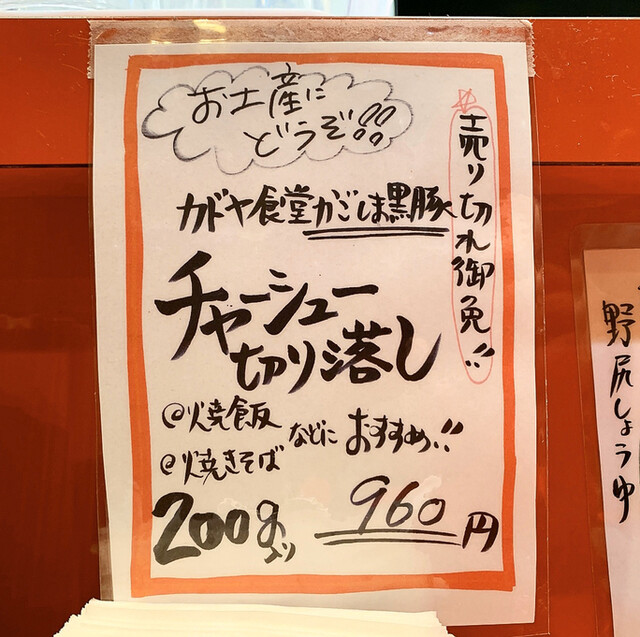 お土産に
どうぞ!!
売り切れ御免!!
カドヤ食堂かごしま黒豚
チャーシュー
切り落し
@焼飯
@焼きそば
などに おすすめ!!
200g入り 960円
野尻しょうゆ